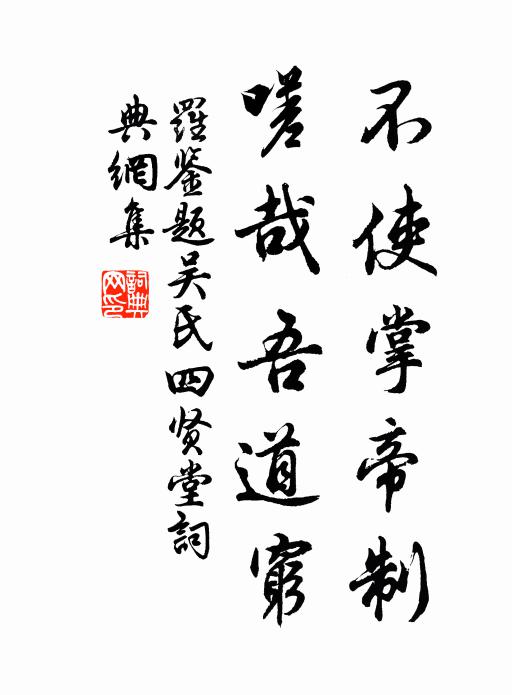 不使掌帝制
嗟哉吾道窮
羅鉴题吴氏四贤堂詞
典網集
詞典网印